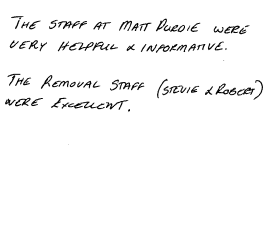 THE STAFF AT MATT PURDIE WERE
VERY HELPFUL & INFORMATIVE.
THE REMOVAL STAFF (STEVIE & ROBERT)
WERE EXCELLENT.